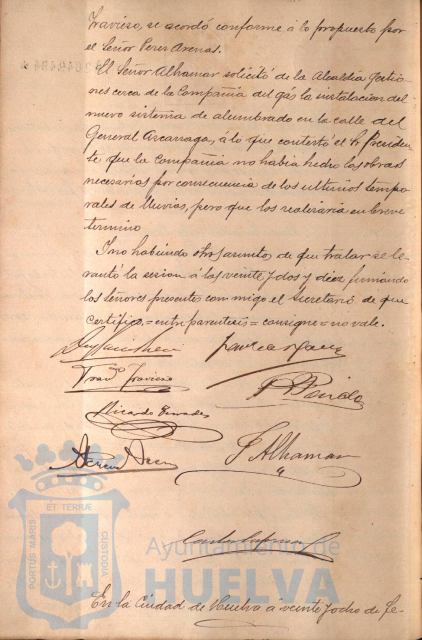 Travieso, se acordó conforme á lo propuesto por
el Señor Perez Arenas.
El Señor Alhamar solicitó de la Alcaldia gestio-
nes cerca de la Compañia del gas la instalacion del
nuevo sistema de alumbrado en la calle del
General Azcarraga, á lo que contestó el Sr Presiden-
te que la Compañia no habia hecho las obras
necesarias por consecuencia de los ultimos tempo-
rales de lluvias, pero que las realizaria en breve
termino
Y no habiendo otros asuntos de que tratar se le-
vantó la sesion á las veinte y dos y diez, firmando
los señores presentes con migo el Secretario de que
certifico.=entre parentesis=consigne=no vale.
Travieso
Ricardo
F Alhamar
ET TERRÆ
PORTUS MARIS
CUSTODIA
Ayuntamiento de
HUELVA
En la Ciudad de Huelva a veinte y ocho de Fe-